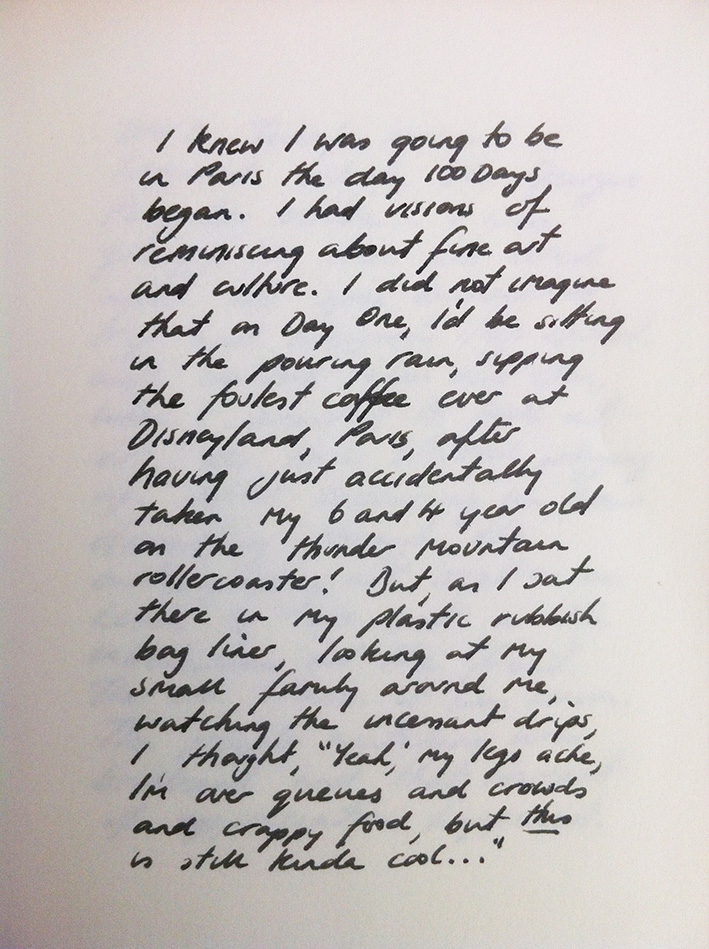 I knew I was going to be
in Paris the day 100 Days
began. I had visions of
reminiscing about fine art
and culture. I did not imagine
that on Day One, I'd be sitting
in the pouring rain, sipping
the foulest coffee ever at
Disneyland, Paris, after
having just accidentally
taken my 6 and 4 year old
on the thunder mountain
rollercoaster! But, as I sat
there in my plastic rubbish
bag liner, looking at my
small family around me,
watching the incessant drips,
I thought, "Yeah, my legs ache,
I'm over queues and crowds
and crappy food, but this
is still kinda cool..."